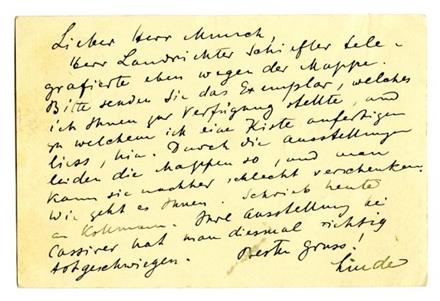 Lieber Herr Munch!
Herr Landrichter Schiefler tele-
grafierte eben wegen der Mappe.
Bitte senden Sie das Exemplar, welches
ich Ihnen zur Verfügung stellte, und
zu welchem ich eine Kiste anfertigen
liess, hin. Durch die Ausstellungen
leiden die Mappen so, und man
kann sie nachher schlecht verschenken.
Wie geht es Ihnen. Schrieb heute
an Kollmann. Ihre Ausstellung bei
Cassirer hat man diesmal richtig
totgeschwiegen. Besten Gruss!
Linde